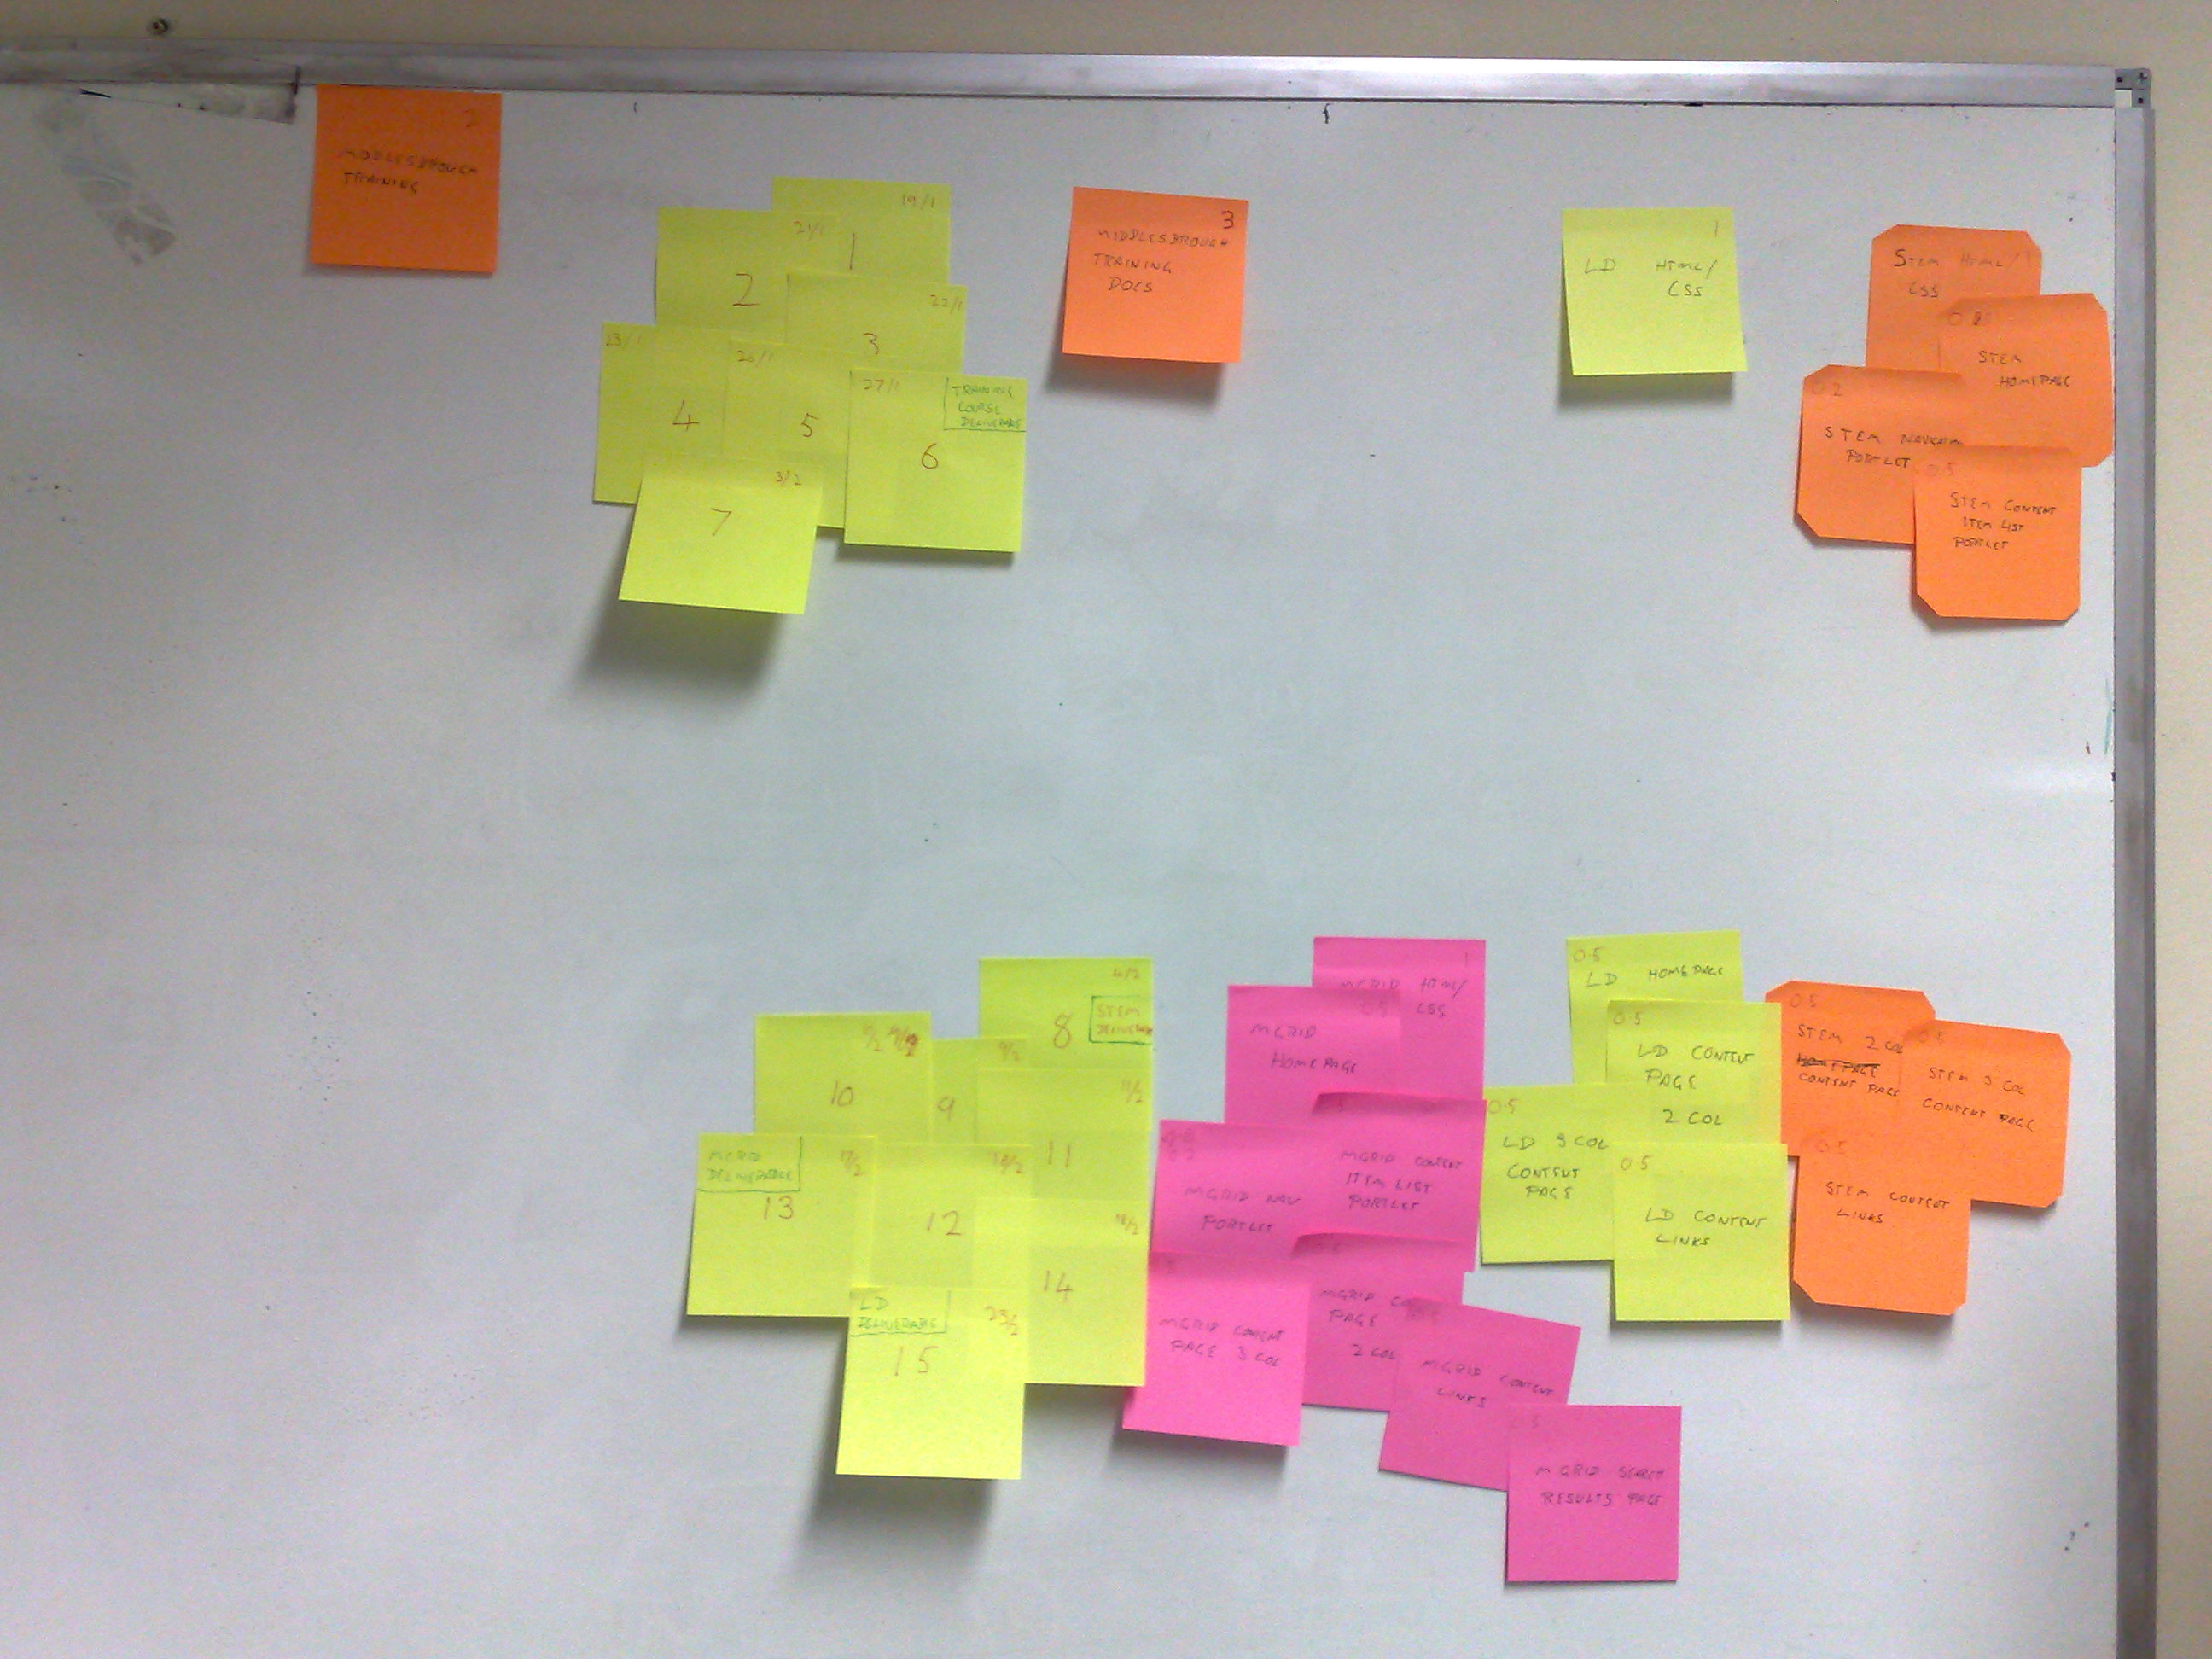 2
MIDDLESBROUGH
TRAINING
19/1
1
21/1
2
22/1
3
23/1
4
26/1
5
27/1
TRAINING
COURSE
DELIVERABLE
6
3/2
7
3
MIDDLESBROUGH
TRAINING
DOCS
1
LD HTML/
CSS
STEM HTML/
CSS
STEM
HOMEPAGE
0.2
STEM NAVIGATION
PORTLET
0.5
STEM CONTENT
ITEM LIST
PORTLET
4/2
STEM
DELIVERABLE
8
9
10
11/2
11
12
MGRID
DELIVERABLE
17/2
13
18/2
14
LD
DELIVERABLE
23/2
15
1
MGRID HTML/
CSS
0.5
MGRID
HOMEPAGE
MGRID NAV
PORTLET
MGRID CONTENT
ITEM LIST
PORTLET
MGRID CONTENT
PAGE 3 COL
MGRID CO
PAGE
2 COL
0.5
MGRID CONTENT
LINKS
0.5
MGRID SEARCH
RESULTS PAGE
0.5
LD HOMEPAGE
0.5
LD CONTENT
PAGE
2 COL
0.5
LD 3 COL
CONTENT
PAGE
0.5
LD CONTENT
LINKS
0.5
STEM 2 COL
HOMEPAGE
CONTENT PAGE
0.5
STEM 3 COL
CONTENT PAGE
0.5
STEM CONTENT
LINKS